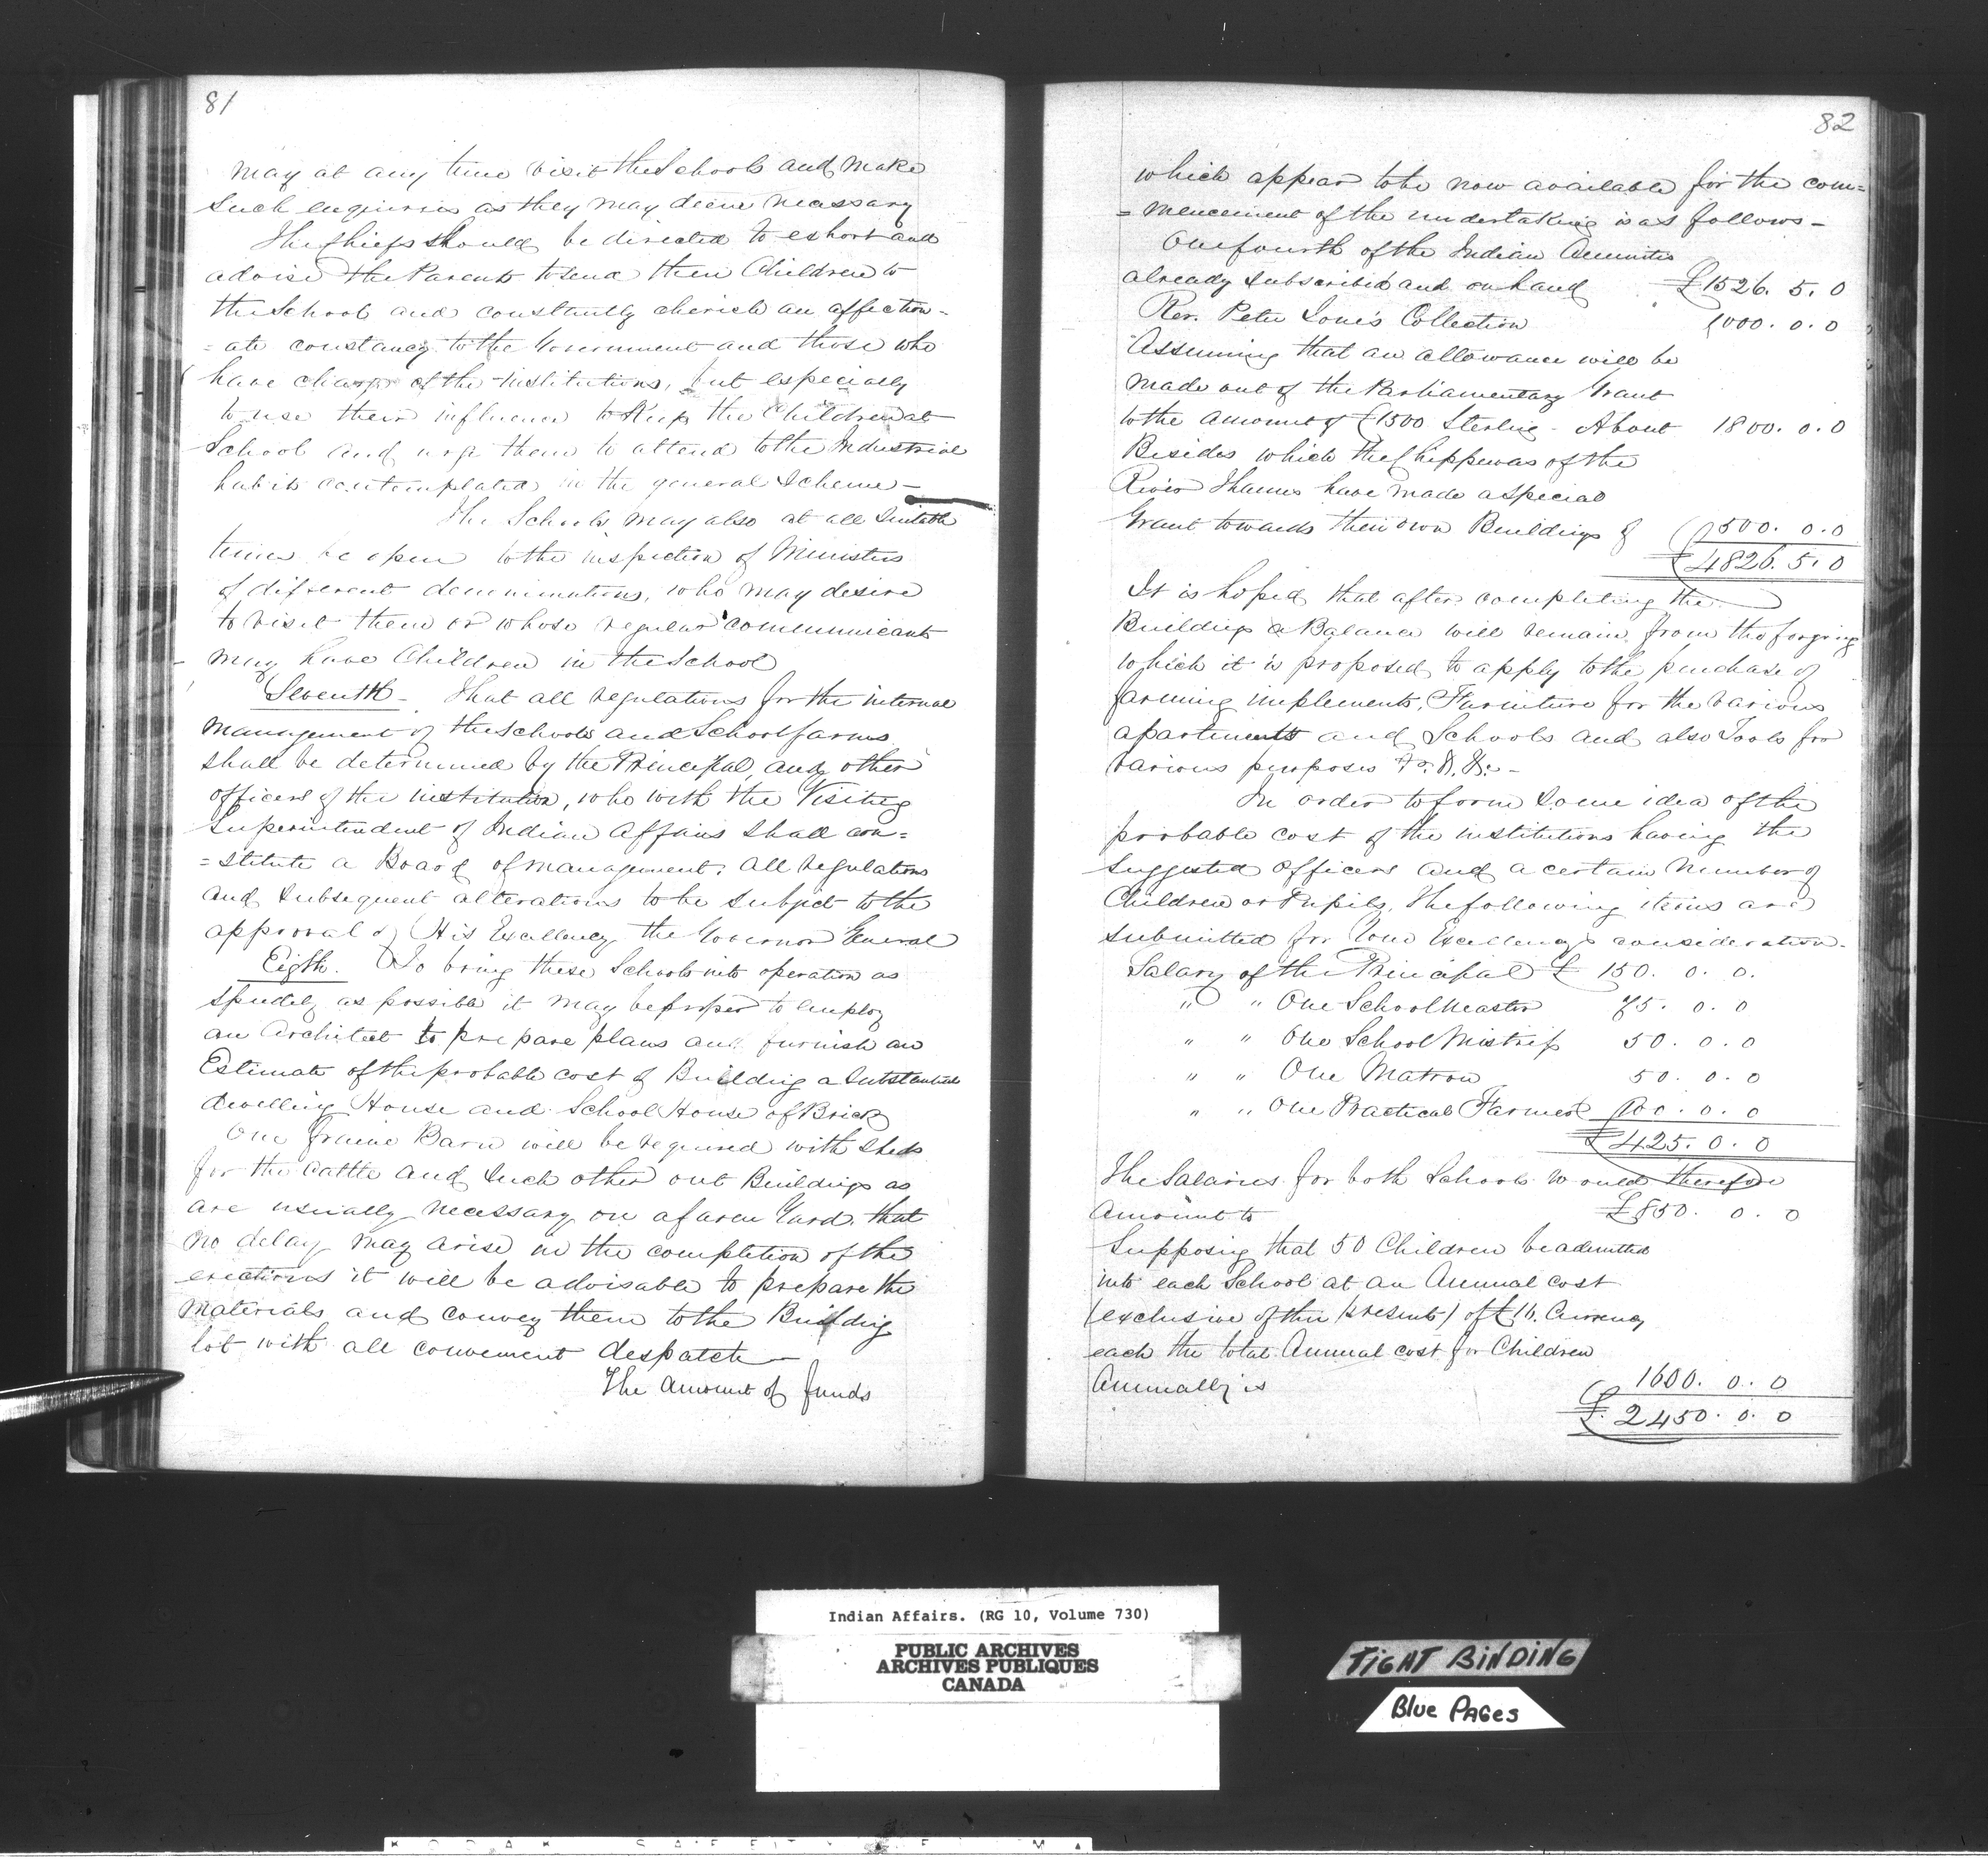 81
may at any time visit the Schools and make
such enquiries as they may deem necessary
The Chiefs should be directed to exhort and
advise the Parents to send their Children to
the School and constantly cherish an affection-
=ate constancy to the Government and those who
have charge of the Institutions, but especially
to use their influence to Keep the Children at
School and urge them to attend to the Industrial
habits contemplated in the general Scheme—
The Schools may also at all Suitable
times be open to the inspection of Ministers
of different denominations, who may desire
to visit them or whose regular communicants
may have Children in the School
Seventh - That all regulations for the internal
Management of the Schools and School farms
shall be determined by the Principal, and other
officers of the institution, who with the Visiting
Superintendent of Indian Affairs shall con=
=stitute a Board of management. All regulations
and subsequent alterations to be subject to the
approval of His Excellency the Governor General
Eigth. To bring these Schools into operation as
speedily as possible it may be proper to employ
an Architect to prepare plans and furnish an
Estimate of the probable cost of Building a Substantial
dwelling House and School House of Brick
One frame Barn will be required with sheds
for the cattle and such other out Buildings as
are usually necessary on a farm Yard. that
no delay may arise in the completion of the
erections it will be advisable to prepare the
Materials and convey them to the Building
lot with all convenient despatch—
The Amount of funds
82
which appear to be now available for the com=
=mencement of the undertaking is as follows-
One fourth of the Indian Annuities
already subscribed and on hand £1526. 5. 0
Rev. Peter Jones's Collection 1000. 0. 0
Assuming that an allowance will be
made out of the Parliamentary Grant
to the amount of £1500 Sterling - About 1800. 0. 0
Besides which the Chippewas of the
River Thames have made a special
Grant towards their own Buildings of 500. 0. 0
£4826. 5. 0
It is hoped that after completing the
Buildings a Balance will remain from the forgoing
which it is proposed to apply to the purchase of
farming implements, Furniture for the various
apartments and Schools and also Tools for
various purposes &c. &. &c-
In order to form some idea of the
probable cost of the institutions having the
suggested officers and a certain number of
Children or Pupils, The following items are
submitted for Your Excellency's consideration-
Salary of the Principal £ 150. 0. 0.
" " One Schoolmaster 75. 0. 0
" " One School Mistress 50. 0. 0
" " One Matron 50. 0. 0
" " One Practical Farmer 100. 0. 0
£425. 0. 0
The Salaries for both Schools would therefore
Amount to £850. 0. 0
Supposing that 50 Children be admitted
into each School at an Annual cost
(exclusive of their presents) of £16. Currency
each the total Annual cost for Children
Annually is 1600. 0. 0
£. 2450. 0. 0
Indian Affairs. (RG 10, Volume 730)
PUBLIC ARCHIVES
ARCHIVES PUBLIQUES
CANADA
TIGHT BINDING
Blue PAGes